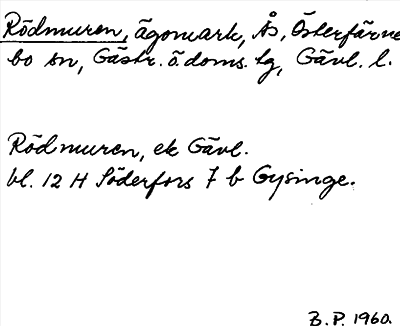 Rödmuren, ägomark, Ås, Österfärne
bo sn, Gästr. ö. doms. lg, Gävl. l.
Rödmuren, ek Gävl.
bl. 12 H Söderfors 7 b Gysinge.
B.P. 1960.